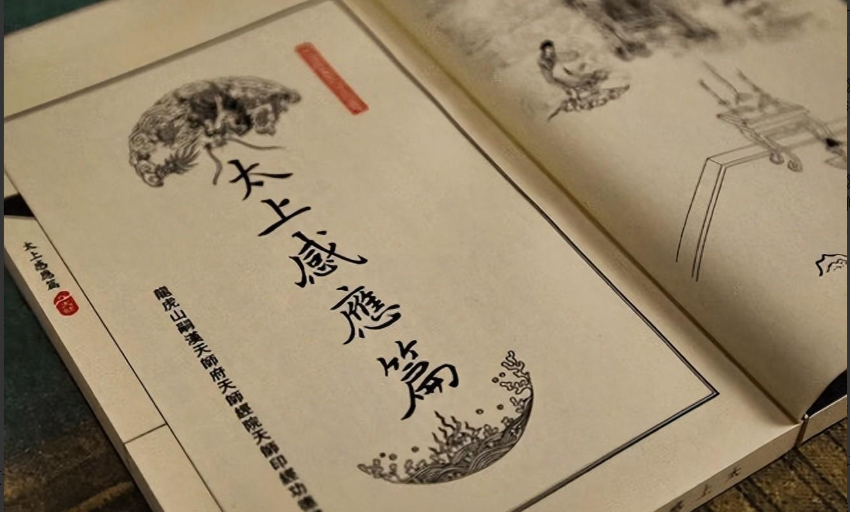 太上感應篇
龍虎山嗣漢天師府天師經院天師印經功德
太上感應篇